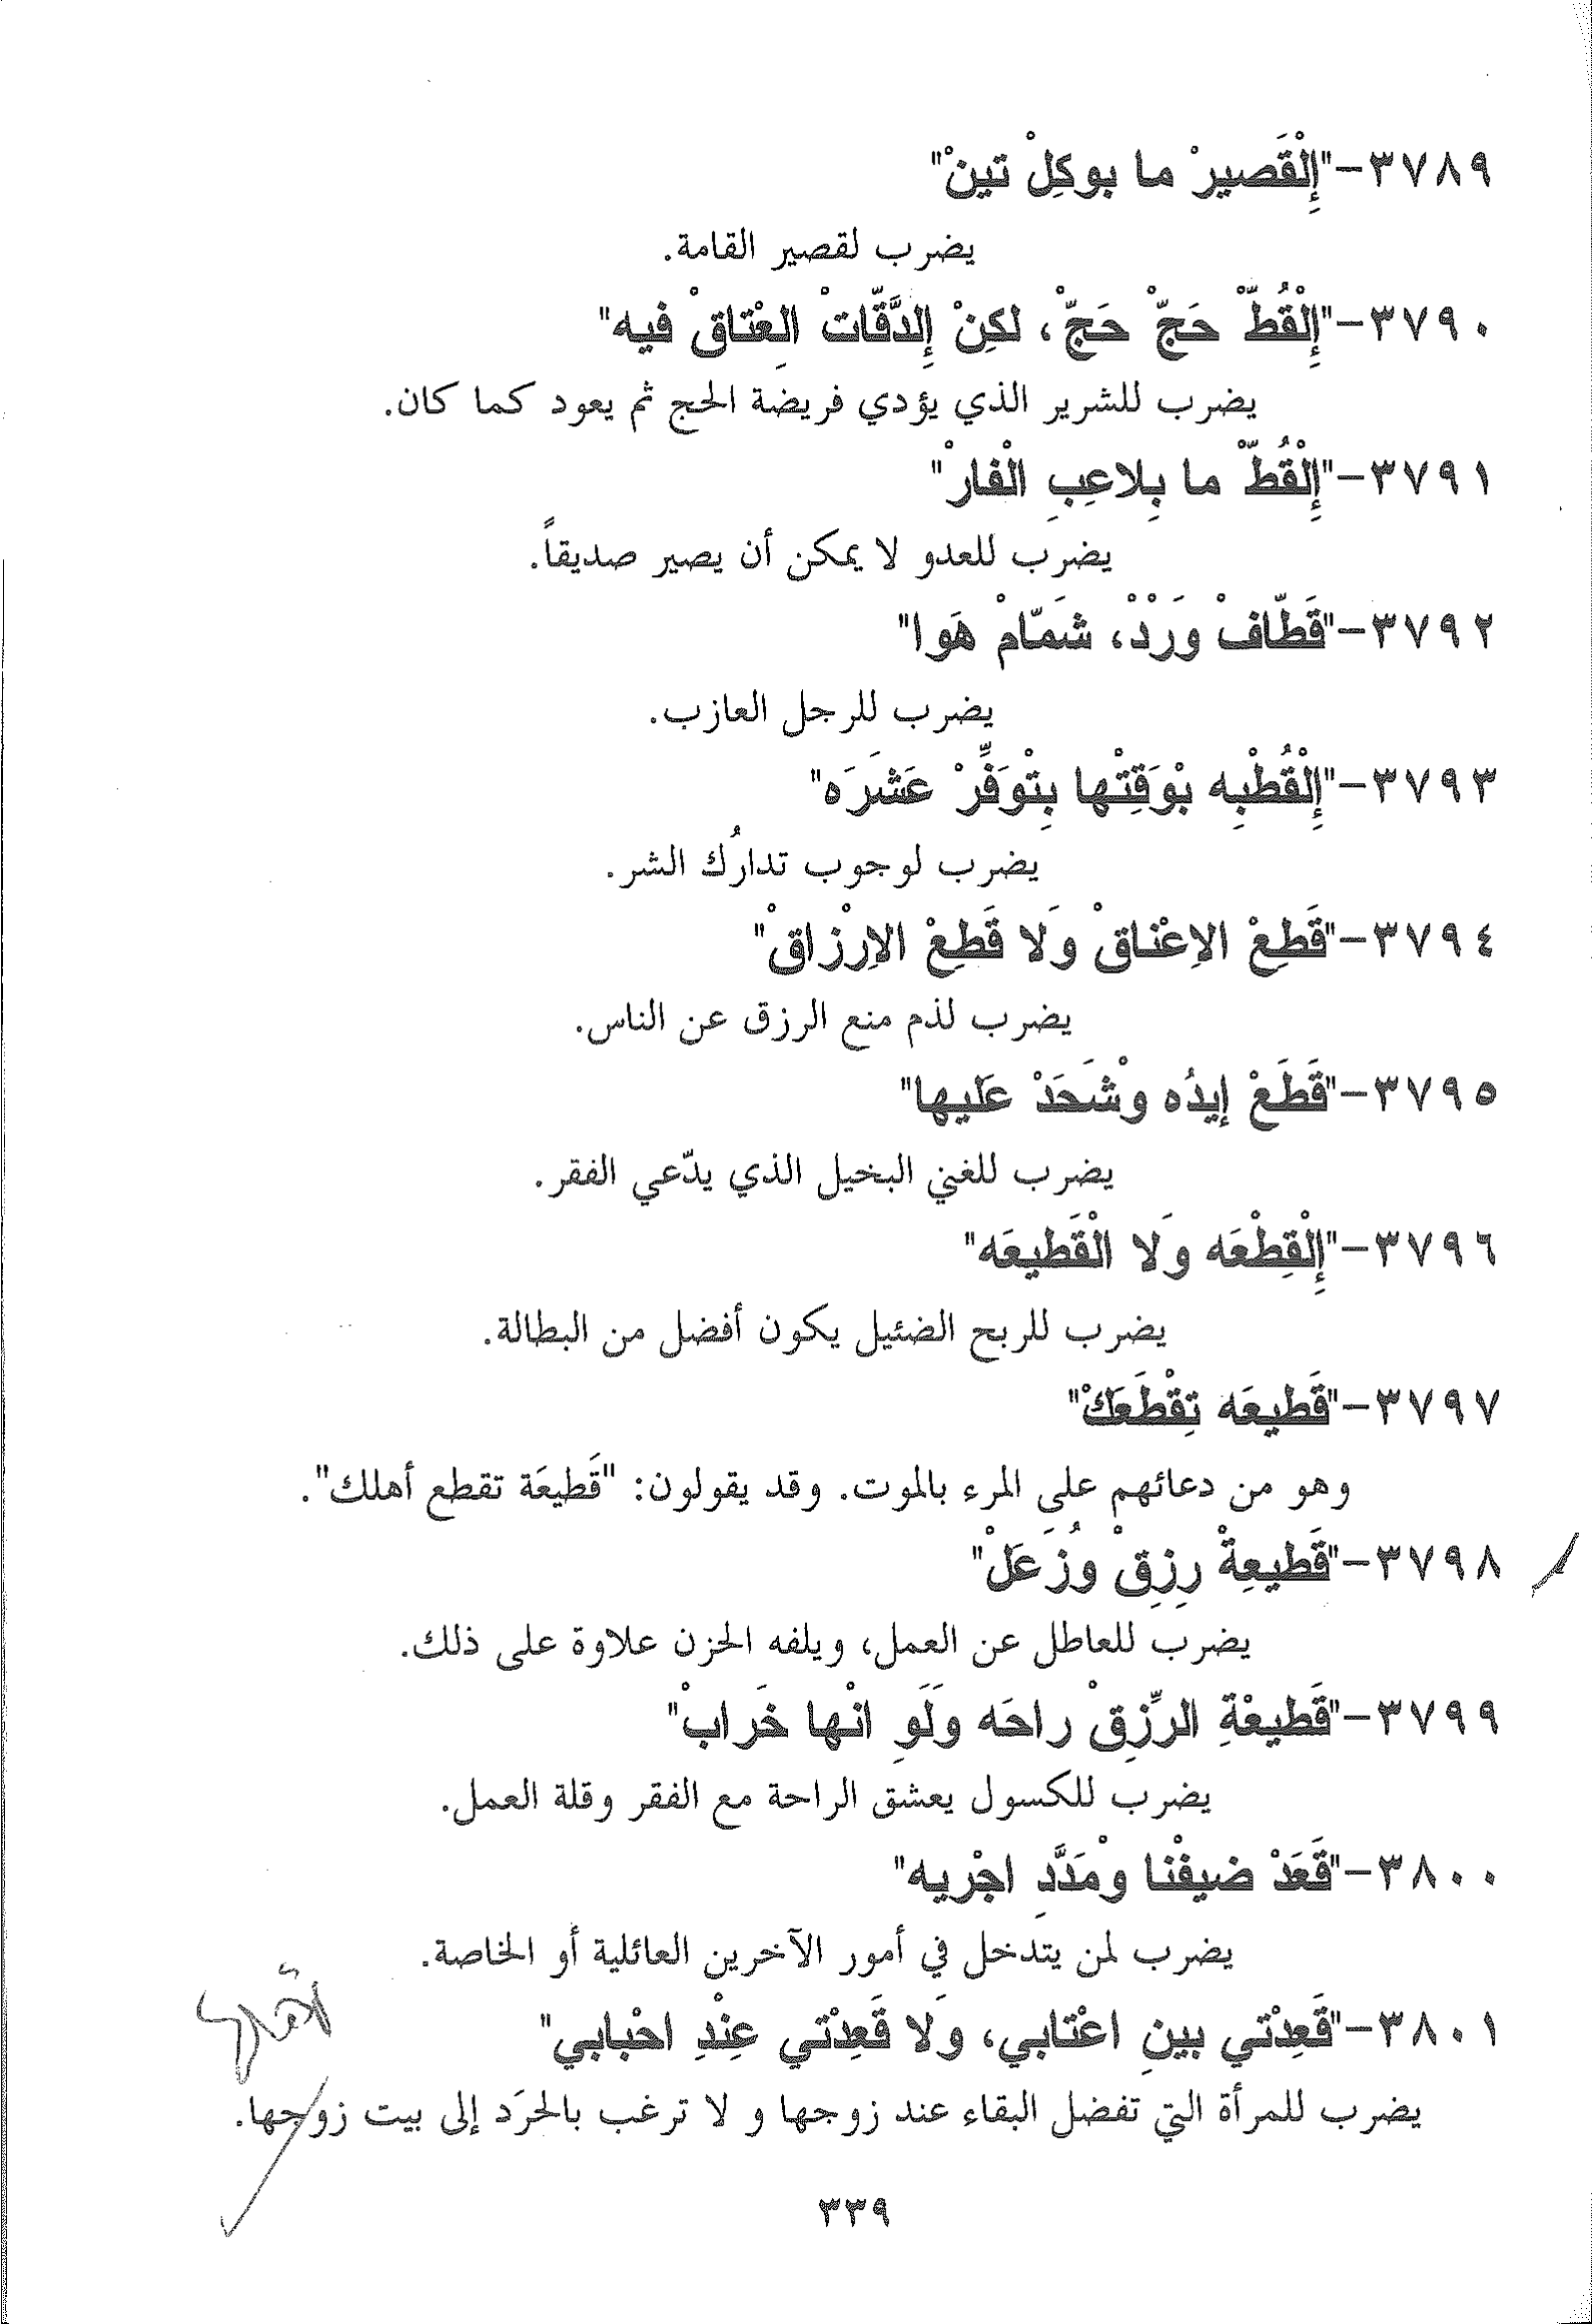 ٣٧٨٩-"إِلْقَصيرْ ما بوكِلْ تينْ"
يضرب لقصير القامة.
٣٧٩٠-"إِلْقُطّْ حَجّْ حَجّْ، لكِنْ إِلدَّقّاتْ الِعْتاقْ فيه"
يضرب للشرير الذي يؤدي فريضة الحج ثم يعود كما كان.
٣٧٩١-"إِلْقُطّْ ما بِلاعِبِ الْفارْ"
يضرب للعدو لا يمكن أن يصير صديقاً.
٣٧٩٢-"قَطّافْ وَرْدْ، شَمّامْ هَوا"
يضرب للرجل العازب.
٣٧٩٣-"إِلْقُطْبِه بْوَقِتْها بِتْوَفِّرْ عَشَرَه"
يضرب لوجوب تدارُك الشر.
٣٧٩٤-"قَطِعْ الاِعْناقْ وَلا قَطِعْ الاِرْزاقْ"
يضرب لذم منع الرزق عن الناس.
٣٧٩٥-"قَطَعْ إيدُه وْشَحَدْ عَليها"
يضرب للغني البخيل الذي يدّعي الفقر.
٣٧٩٦-"إِلْقِطْعَه وَلا الْقَطيعَه"
يضرب للربح الضئيل يكون أفضل من البطالة.
٣٧٩٧-"قَطيعَه تِقْطَعَكْ"
وهو من دعائهم على المرء بالموت. وقد يقولون: "قَطيعَة تقطع أهلك".
٣٧٩٨-"قَطيعِةْ رِزِقْ وُزَعَلْ"
يضرب للعاطل عن العمل، ويلفه الحزن علاوة على ذلك.
٣٧٩٩-"قَطيعْةِ الرِّزِقْ راحَه وَلَوِ انْها خَرابْ"
يضرب للكسول يعشق الراحة مع الفقر وقلة العمل.
٣٨٠٠-"قَعَدْ ضيفْنا وْمَدَّدِ اجْريه"
يضرب لمن يتدخل في أمور الآخرين العائلية أو الخاصة.
٣٨٠١-"قَعِدْتي بينِ اعْتابي، وَلا قَعِدْتي عِنْدِ احْبابي"
يضرب للمرأة التي تفضل البقاء عند زوجها و لا ترغب بالحرَد إلى بيت زوجها.
٣٣٩